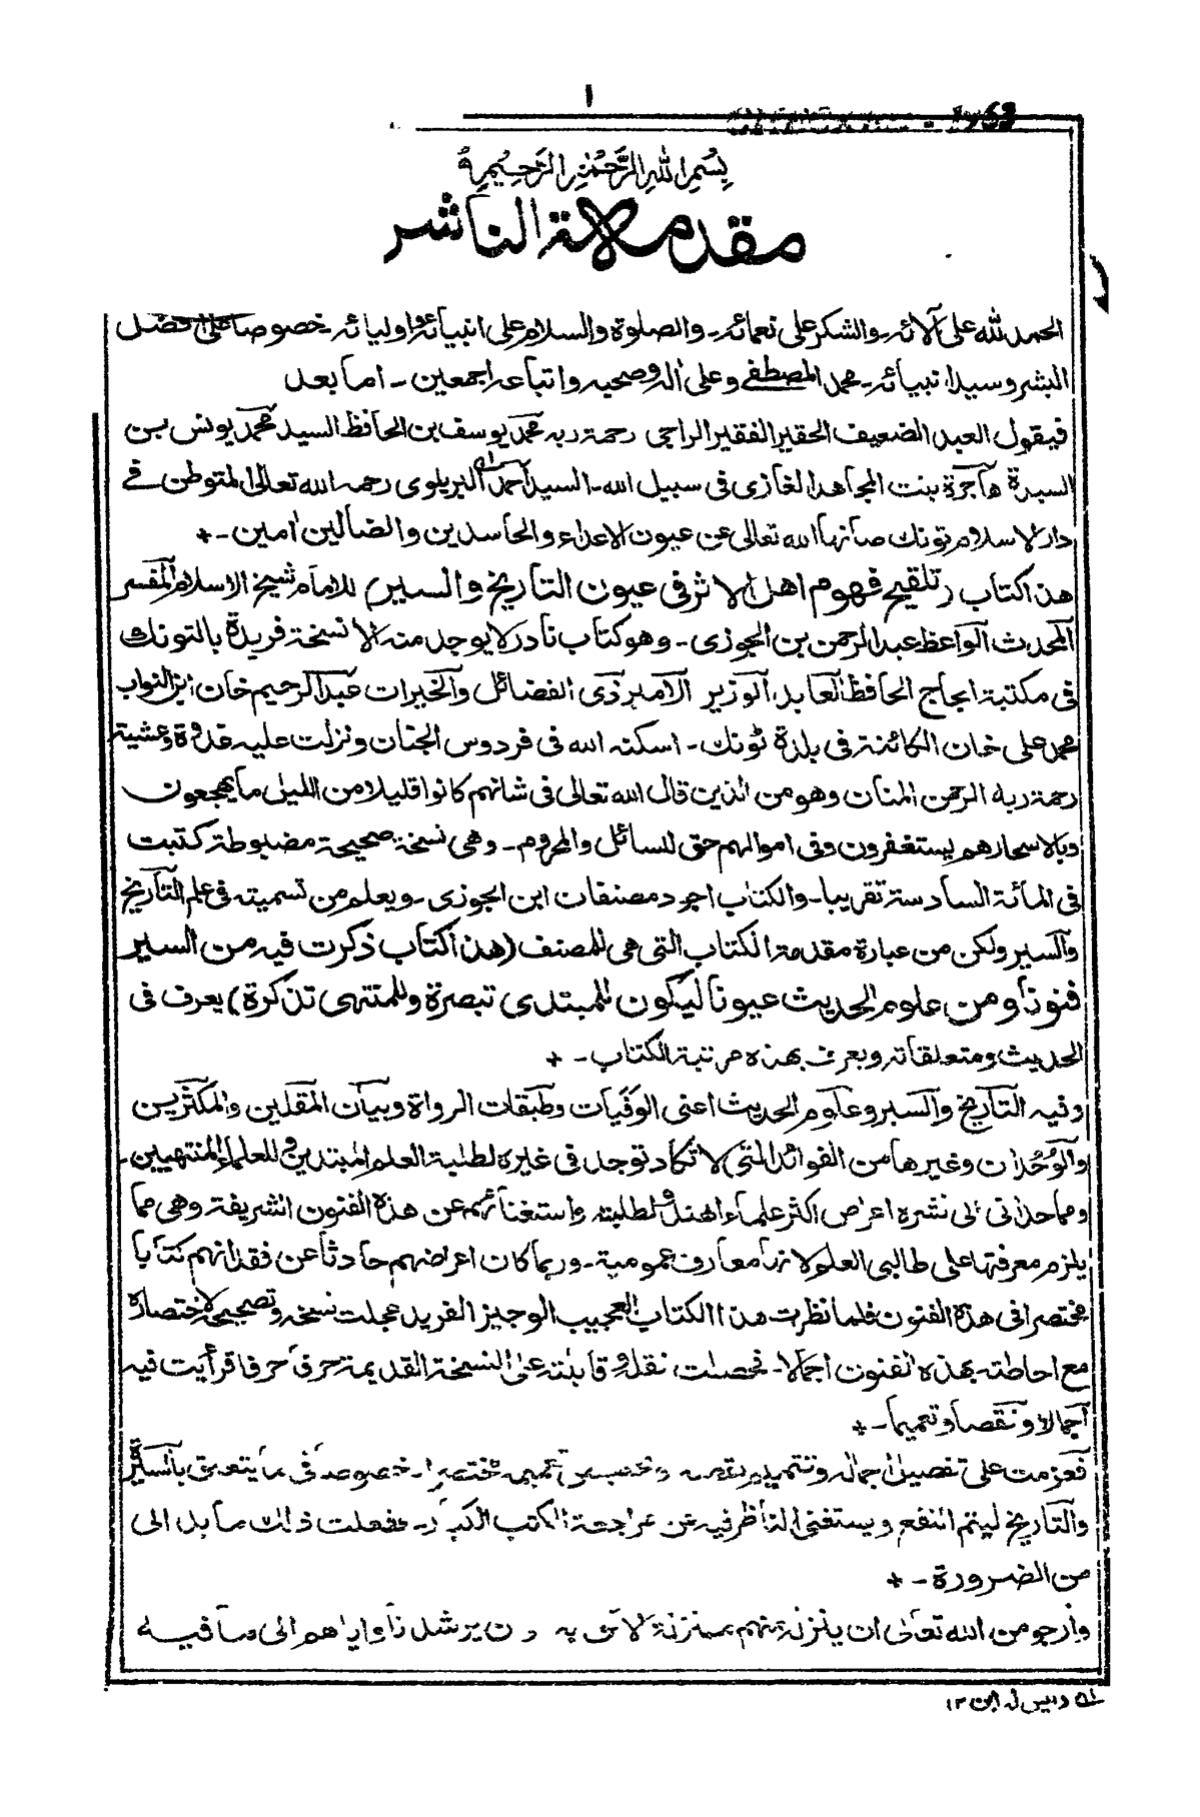 ١
بسم الله الرحمن الرحيم
مقدمة الناشر
الحمد لله على آلائه۔ والشكر على نعمائه۔ والصلوة والسلام على انبيائه واوليائه۔ خصوصا على افضل
البشر وسيد انبيائه۔ محمد المصطفى وعلى اله وصحبه واتباعه اجمعين۔ اما بعد
فيقول العبد الضعيف الحقير الفقير الراجى رحمة ربه محمد يوسف بن الحافظ السيد محمد يونس بن
السيدة هآجرة بنت المجاهد الغازى فى سبيل الله۔ السيد احمد البريلوى رحمه الله تعالى المتوطن فى
دار الاسلام تونك صانها الله تعالى عن عيون الاعداء والحاسدين والضالين امين۔+
هذا كتاب (تلقيح فهوم اهل الاثر فى عيون التاريخ والسير) للامام شيخ الاسلام المفسر
المحدث الواعظ عبد الرحمن بن الجوزى۔ وهو كتاب نادر لا يوجد منه الا نسخة فريدة بالتونك
فى مكتبة الحاج الحافظ العابد الوزير الامير ذى الفضائل والخيرات عبد الرحيم خان ابن النواب
محمد على خان الكائنة فى بلدة ٹونك۔ اسكنه الله فى فردوس الجنان ونزلت عليه غدوة وعشية
رحمة ربه الرحمن المنان وهو من الذين قال الله تعالى فى شانهم كانوا قليلا من الليل ما يهجعون
وبالاسحار هم يستغفرون وفى اموالهم حق للسائل والمحروم۔ وهى نسخة صحيحة مضبوطة كتبت
فى المائة السادسة تقريبا۔ والكتاب اجود مصنفات ابن الجوزى۔ ويعلم من تسميته فى علم التاريخ
والسير ولكن من عبارة مقدمة الكتاب التى هى للمصنف (هذا كتاب ذكرت فيه من السير
فنونا ومن علوم الحديث عيونا ليكون للمبتدى تبصرة وللمنتهى تذكرة) يعرف فى
الحديث ومتعلقاته ويعرف بهذه مرتبة الكتاب۔+
وفيه التاريخ والسير وعلوم الحديث اعنى الوفيات وطبقات الرواة وبيان المقلين والمكثرين
والوحدان وغيرها من الفوائد التى لا تكاد توجد فى غيره لطلبة العلم المبتدين وللعلماء المنتهيين۔
ومما حدانى الى نشره اعراض اكثر علماء الهند ولطلبته واستغنائهم عن هذه الفنون الشريفة وهى مما
يلزم معرفتها على طالبى العلو لانها معارف عمومية۔ وربما كان اعراضهم حادثا عن فقدانهم كتابا
مختصرا فى هذه الفنون فلما نظرت هذا الكتاب العجيب الوجيز الفريد عجلت نسخه وتصحيحه لاختصاره
مع احاطته بهذه الفنون اجمالا۔ فحصلت نقله وقابلته على النسخة القديمة حرفا حرفا فرأيت فيه
اجمالا ونقصا وتعميما۔+
فعزمت على تفصيل اجماله وتتميم نقصه وتخصيص تعميمه مختصرا۔ خصوصا فى ما يتعلق بالسير
والتاريخ ليتم النفع ويستغنى الناظر فيه عن مراجعة الكتب الكبار۔ ففعلت ذلك ما بدا لى
من الضرورة۔+
وارجو من الله تعالى ان ينزله منهم بمنزلة لائق به وان يرشدنا واياهم الى ما فيه